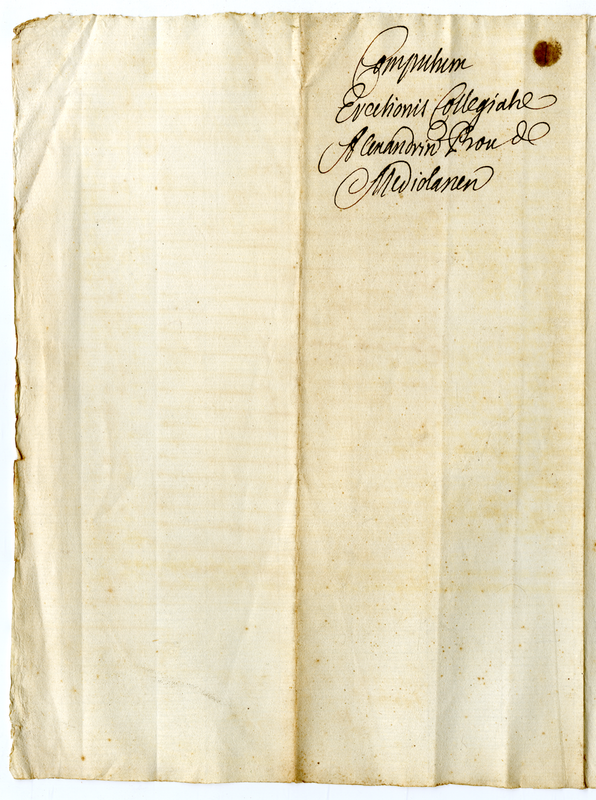 Computum
Erectionis Collegiatæ
Alexandrin Prou de
Mediolanen